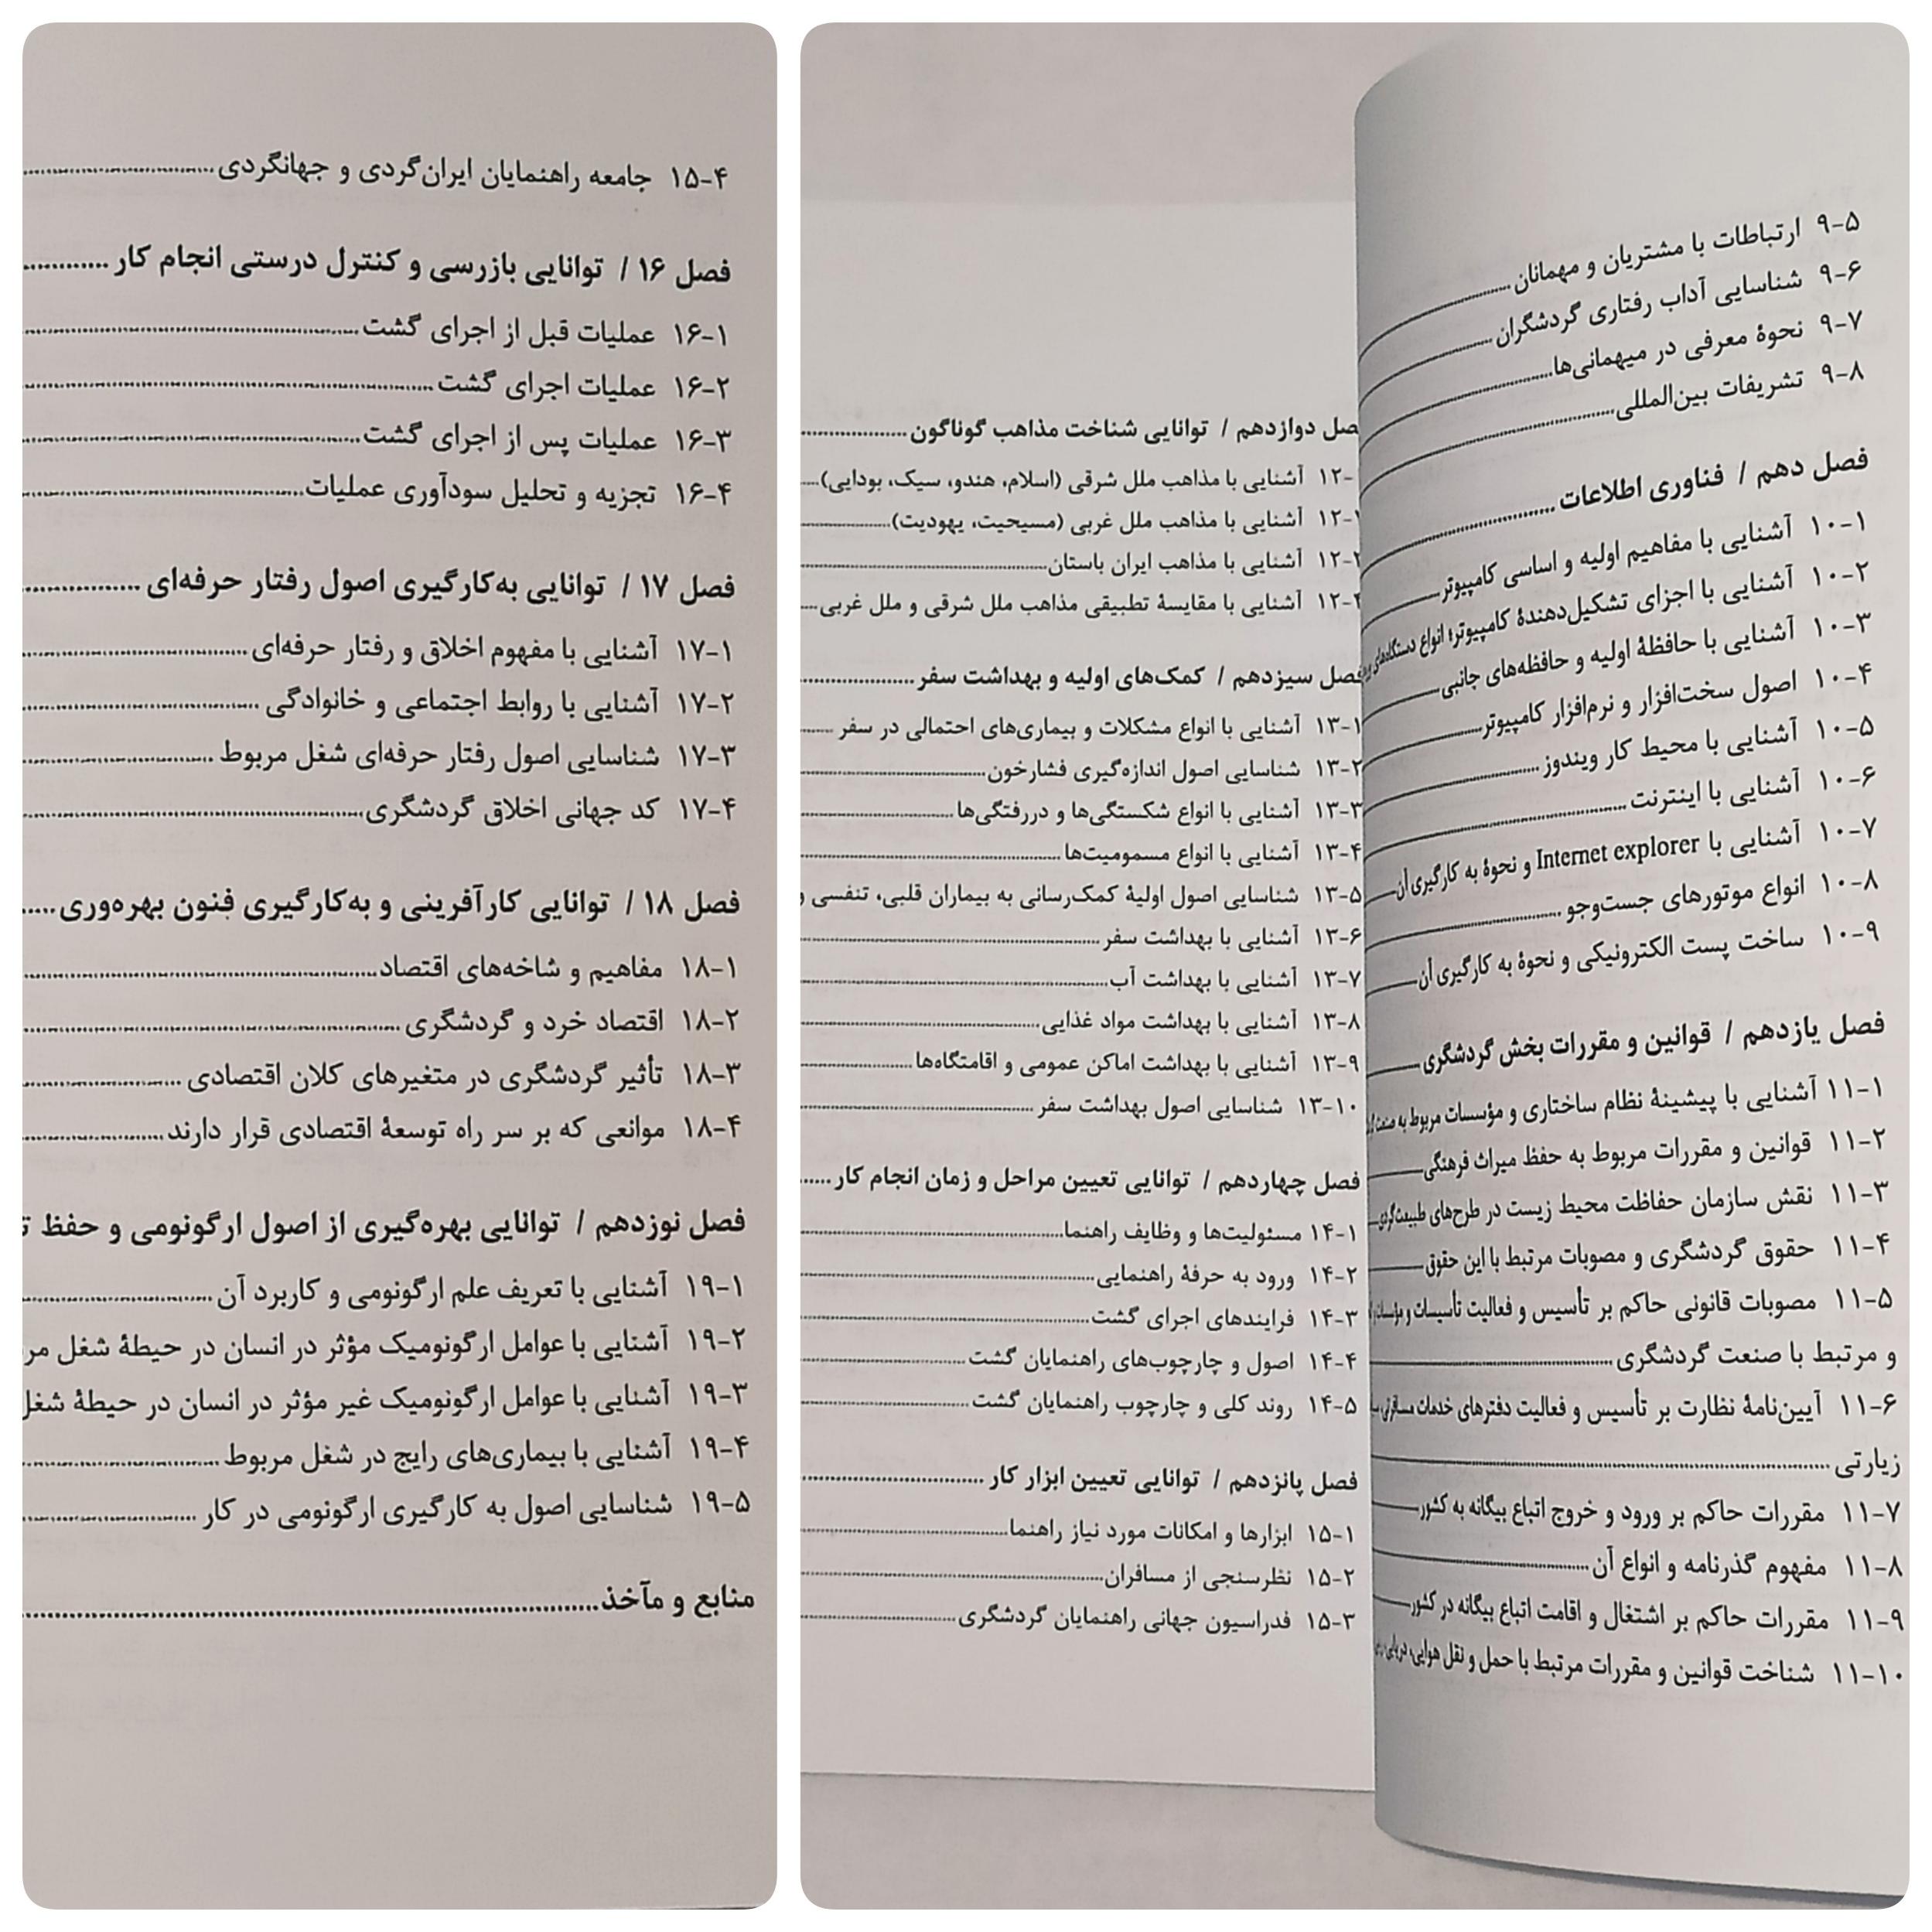 ۹-۵ ارتباطات با مشتریان و مهمانان
۹-۶ شناسایی آداب رفتاری گردشگران
۹-۷ نحوۀ معرفی در میهمانی‌ها
۹-۸ تشریفات بین‌المللی
فصل دهم / فناوری اطلاعات
۱۰-۱ آشنایی با مفاهیم اولیه و اساسی کامپیوتر
۱۰-۲ آشنایی با اجزای تشکیل‌دهندۀ کامپیوتر؛ انواع دستگاه‌های
۱۰-۳ آشنایی با حافظۀ اولیه و حافظه‌های جانبی
۱۰-۴ اصول سخت‌افزار و نرم‌افزار کامپیوتر
۱۰-۵ آشنایی با محیط کار ویندوز
۱۰-۶ آشنایی با اینترنت
۱۰-۷ آشنایی با Internet explorer و نحوۀ به کارگیری آن
۱۰-۸ انواع موتورهای جست‌وجو
۱۰-۹ ساخت پست الکترونیکی و نحوۀ به کارگیری آن
فصل یازدهم / قوانین و مقررات بخش گردشگری
۱۱-۱ آشنایی با پیشینۀ نظام ساختاری و مؤسسات مربوط به صنعت
۱۱-۲ قوانین و مقررات مربوط به حفظ میراث فرهنگی
۱۱-۳ نقش سازمان حفاظت محیط زیست در طرح‌های طبیعت‌گردی
۱۱-۴ حقوق گردشگری و مصوبات مرتبط با این حقوق
۱۱-۵ مصوبات قانونی حاکم بر تأسیس و فعالیت تأسیسات و مؤسسات
و مرتبط با صنعت گردشگری
۱۱-۶ آیین‌نامۀ نظارت بر تأسیس و فعالیت دفترهای خدمات مسافرتی،
زیارتی
۱۱-۷ مقررات حاکم بر ورود و خروج اتباع بیگانه به کشور
۱۱-۸ مفهوم گذرنامه و انواع آن
۱۱-۹ مقررات حاکم بر اشتغال و اقامت اتباع بیگانه در کشور
۱۱-۱۰ شناخت قوانین و مقررات مرتبط با حمل و نقل هوایی، دریایی،
صل دوازدهم / توانایی شناخت مذاهب گوناگون
۱۲- آشنایی با مذاهب ملل شرقی (اسلام، هندو، سیک، بودایی)
۱۲- آشنایی با مذاهب ملل غربی (مسیحیت، یهودیت)
۱۲- آشنایی با مذاهب ایران باستان
۱۲- آشنایی با مقایسۀ تطبیقی مذاهب ملل شرقی و ملل غربی
فصل سیزدهم / کمک‌های اولیه و بهداشت سفر
۱۳-۱ آشنایی با انواع مشکلات و بیماری‌های احتمالی در سفر
۱۳-۲ شناسایی اصول اندازه‌گیری فشارخون
۱۳-۳ آشنایی با انواع شکستگی‌ها و دررفتگی‌ها
۱۳-۴ آشنایی با انواع مسمومیت‌ها
۱۳-۵ شناسایی اصول اولیۀ کمک‌رسانی به بیماران قلبی، تنفسی و
۱۳-۶ آشنایی با بهداشت سفر
۱۳-۷ آشنایی با بهداشت آب
۱۳-۸ آشنایی با بهداشت مواد غذایی
۱۳-۹ آشنایی با بهداشت اماکن عمومی و اقامتگاه‌ها
۱۳-۱۰ شناسایی اصول بهداشت سفر
فصل چهاردهم / توانایی تعیین مراحل و زمان انجام کار
۱۴-۱ مسئولیت‌ها و وظایف راهنما
۱۴-۲ ورود به حرفۀ راهنمایی
۱۴-۳ فرایندهای اجرای گشت
۱۴-۴ اصول و چارچوب‌های راهنمایان گشت
۱۴-۵ روند کلی و چارچوب راهنمایان گشت
فصل پانزدهم / توانایی تعیین ابزار کار
۱۵-۱ ابزارها و امکانات مورد نیاز راهنما
۱۵-۲ نظرسنجی از مسافران
۱۵-۳ فدراسیون جهانی راهنمایان گردشگری
۱۵-۴ جامعه راهنمایان ایران‌گردی و جهانگردی
فصل ۱۶ / توانایی بازرسی و کنترل درستی انجام کار
۱۶-۱ عملیات قبل از اجرای گشت
۱۶-۲ عملیات اجرای گشت
۱۶-۳ عملیات پس از اجرای گشت
۱۶-۴ تجزیه و تحلیل سودآوری عملیات
فصل ۱۷ / توانایی به‌کارگیری اصول رفتار حرفه‌ای
۱۷-۱ آشنایی با مفهوم اخلاق و رفتار حرفه‌ای
۱۷-۲ آشنایی با روابط اجتماعی و خانوادگی
۱۷-۳ شناسایی اصول رفتار حرفه‌ای شغل مربوط
۱۷-۴ کد جهانی اخلاق گردشگری
فصل ۱۸ / توانایی کارآفرینی و به‌کارگیری فنون بهره‌وری
۱۸-۱ مفاهیم و شاخه‌های اقتصاد
۱۸-۲ اقتصاد خرد و گردشگری
۱۸-۳ تأثیر گردشگری در متغیرهای کلان اقتصادی
۱۸-۴ موانعی که بر سر راه توسعۀ اقتصادی قرار دارند
فصل نوزدهم / توانایی بهره‌گیری از اصول ارگونومی و حفظ
۱۹-۱ آشنایی با تعریف علم ارگونومی و کاربرد آن
۱۹-۲ آشنایی با عوامل ارگونومیک مؤثر در انسان در حیطۀ شغل
۱۹-۳ آشنایی با عوامل ارگونومیک غیر مؤثر در انسان در حیطۀ شغل
۱۹-۴ آشنایی با بیماری‌های رایج در شغل مربوط
۱۹-۵ شناسایی اصول به کارگیری ارگونومی در کار
منابع و مآخذ